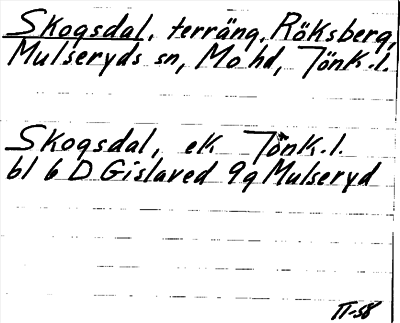 Skogsdal, terräng, Röksberg,
Mulseryds sn, Mo hd, Jönk.l.
Skogsdal, ek Jönk.l.
bl 6 D Gislaved 9g Mulseryd
II-58